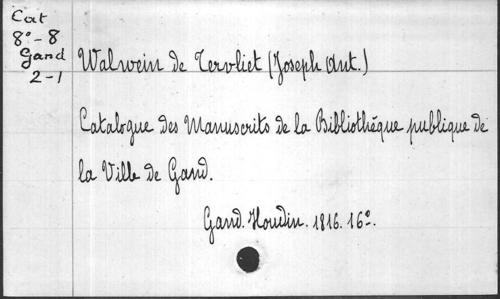 Cat
8° - 8
Gand
2-1
Walwein de Tervliet (Joseph Ant.)
Catalogue des Manuscrits de la Bibliothéque publique de
la Ville de Gand.
Gand. Houdin. 1816. 16°.